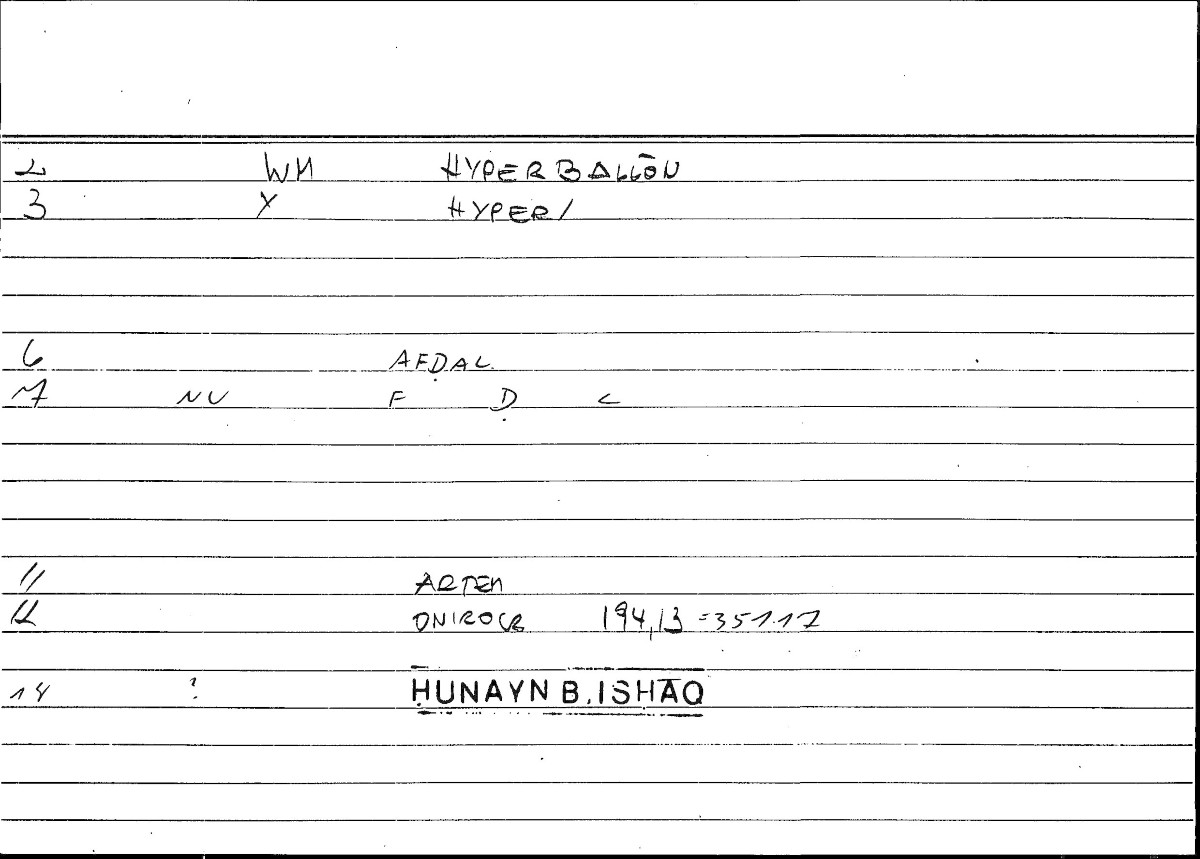 2 WM HYPERBALLŌN
3 X HYPER/
6 AFḌAL
7 NU F Ḍ L
11 ARTEM
12 ONIROCR 194,13 = 351.17
14 ? ḤUNAYN B. ISḤĀQ